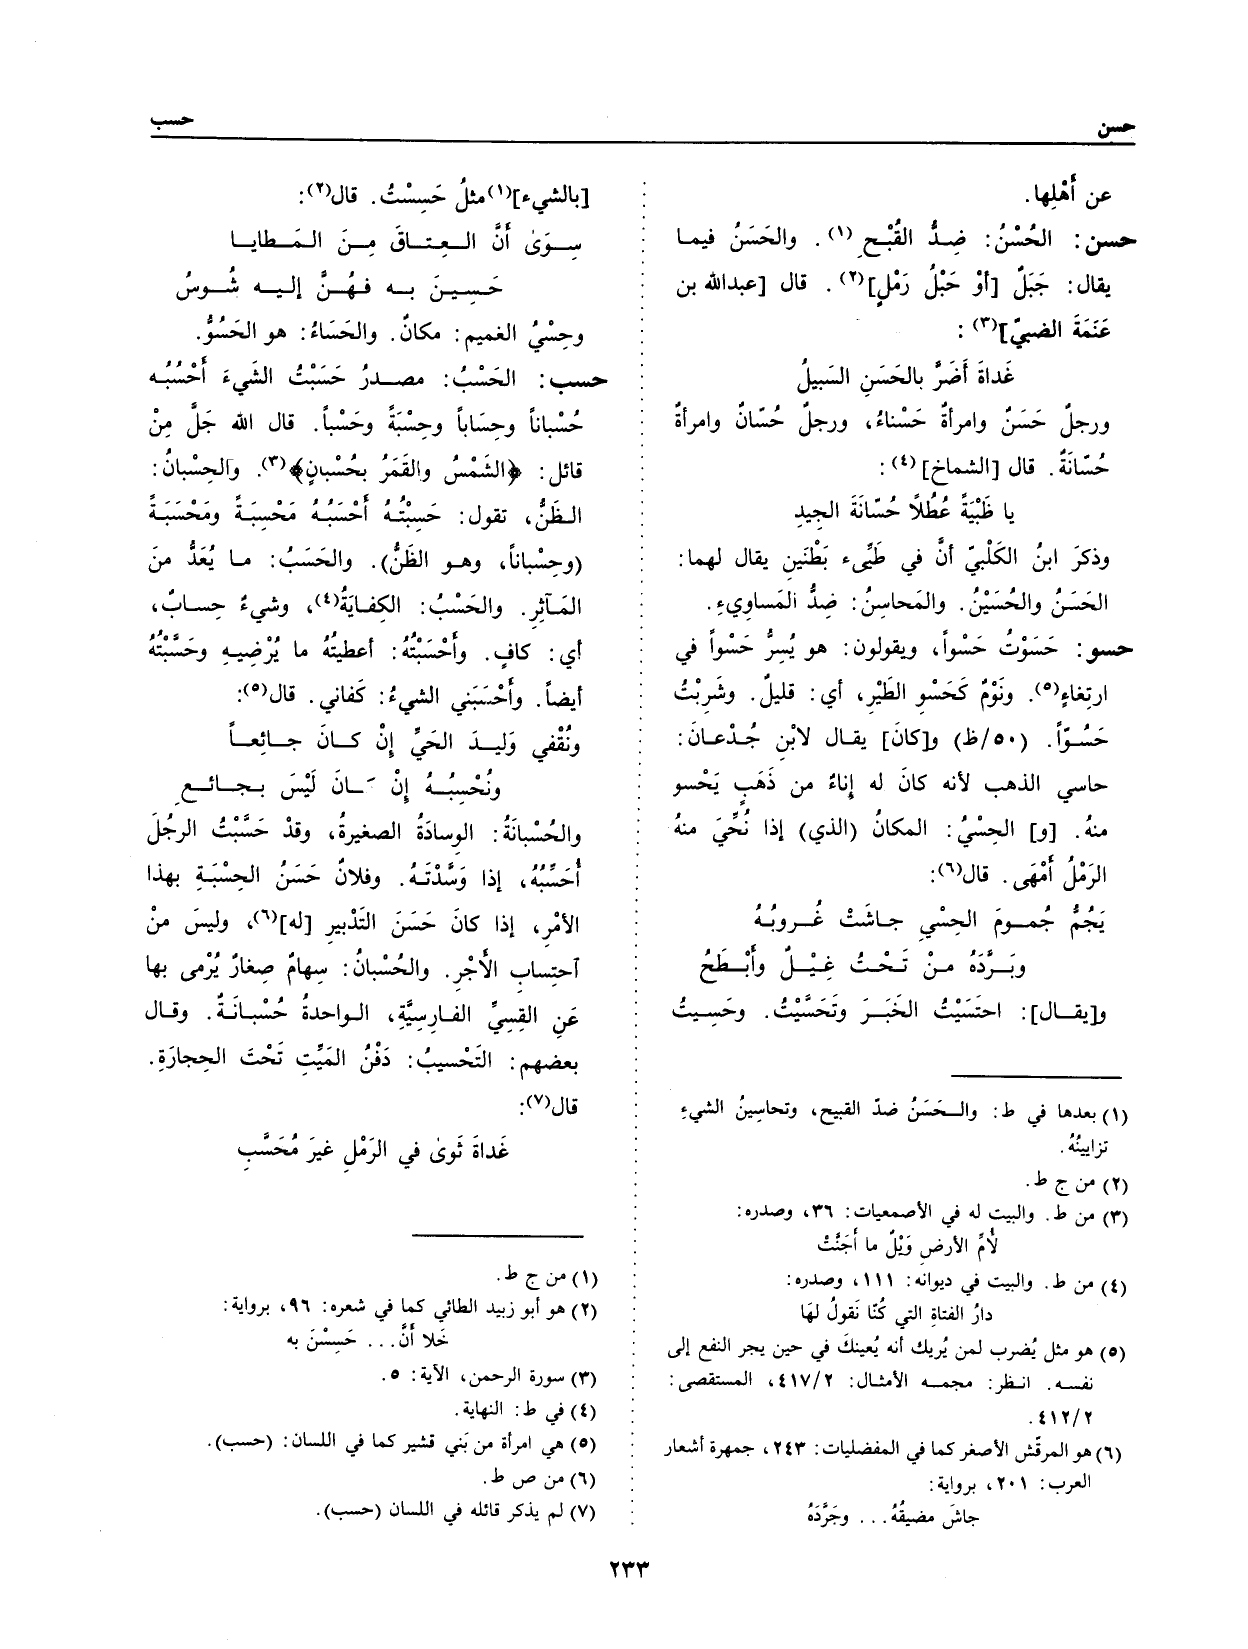 حسن
حسب
عن أَهْلِها.
حسن: الحُسْنُ: ضِدُّ القُبْحِ (١). والحَسَنُ فيما
يقال: جَبَلٌ [أوْ حَبْلُ رَمْلٍ](٢). قال [عبدالله بن
عَنَمَةَ الضبيّ](٣):
غَداةَ أَضَرَّ بالحَسَنِ السَبيلُ
ورجلٌ حَسَنٌ وامرأةٌ حَسْناءُ، ورجلٌ حُسّانٌ وامرأةٌ
حُسّانَةٌ. قال [الشماخ](٤):
يا ظَبْيَةً عُطُلاً حُسّانَةَ الجيدِ
وذكرَ ابنُ الكَلْبيّ أنَّ في طَيِّىء بَطْنَين يقال لهما:
الحَسَنُ والحُسَيْنُ. والمَحاسِنُ: ضِدُّ المَساوِيءِ.
حسو: حَسَوْتُ حَسْواً، ويقولون: هو يُسِرُّ حَسْواً في
ارتِغاءٍ(٥). ونَوْمٌ كَحَسْوِ الطَيْرِ، أي: قليلٌ. وشَرِبْتُ
حَسُوّاً. (٥٠/ظ) و[كانَ] يقال لابْنِ جُدْعانَ:
حاسي الذهب لأنه كانَ له إناءٌ من ذَهَبٍ يَحْسو
منهُ. [و] الحِسْيُ: المكانُ (الذي) إذا نُحِّيَ منهُ
الرَمْلُ أَمْهَى. قال(٦):
يَجُمُّ جُمومَ الحِسْيِ جاشَتْ غُروبُهُ
وبَرَّدَهُ مِنْ تَحْتُ غِيْلٌ وأَبْطَحُ
و[يقال]: احتَسَيْتُ الخَبَرَ وتَحَسَّيْتُ. وحَسِيتُ
(١) بعدها في ط: والحَسَنُ ضدّ القبيح، وتحاسِينُ الشيءِ
تزايينُهُ.
(٢) من ج ط.
(٣) من ط. والبيت له في الأصمعيات: ٣٦، وصدره:
لُأمِّ الأرضِ وَيْلٌ ما أَجَنَّتْ
(٤) من ط. والبيت في ديوانه: ١١١، وصدره:
دارُ الفتاةِ التي كُنّا نَقولُ لهَا
(٥) هو مثل يُضرب لمن يُريك أنه يُعينكَ في حين يجر النفع إلى
نفسه. انظر: مجمه الأمثال: ٤١٧/٢، المستقصى:
٤١٢/٢.
(٦) هو المرقّش الأصغر كما في المفضليات: ٢٤٣، جمهرة أشعار
العرب: ٢٠١، برواية:
جاشَ مضيقُهُ... وجَرَّدَهُ
[بالشيء](١) مثلُ حَسِسْتُ. قال(٢):
سِوَىٰ أنَّ العِتاقَ مِنَ المَطايا
حَسِينَ به فهُنَّ إليه شُوسُ
وحِسْيُ الغميم: مكانٌ. والحَسَاءُ: هو الحَسُوُّ.
حسب: الحَسْبُ: مصدرُ حَسَبْتُ الشيءَ أَحْسُبُه
حُسْباناً وحِسَاباً وحِسْبَةً وحَسْباً. قال الله جَلَّ مِنْ
قائل: ﴿الشَمْسُ والقَمَرُ بحُسْبانٍ﴾(٣). والحِسْبانُ:
الظَنُّ، تقول: حَسِبْتهُ أَحْسَبُهُ مَحْسِبَةً ومَحْسَبَةً
(وحِسْباناً، وهو الظَنُّ). والحَسَبُ: ما يُعَدُّ منَ
المَآثِرِ. والحَسْبُ: الكِفايَةُ(٤)، وشيءٌ حِسابٌ،
أي: كافٍ. وأَحْسَبْتُهُ: أعطيتُهُ ما يُرْضِيهِ وحَسَّبْتُهُ
أيضاً. وأَحْسَبَني الشيءُ: كَفاني. قال(٥):
ونُقْفي وَليدَ الحَيِّ إنْ كانَ جائِعاً
ونُحْسِبُهُ إنْ كانَ لَيْسَ بجائعِ
والحُسْبانَةُ: الوسادَةُ الصغيرةُ، وقدْ حَسَّبْتُ الرجُلَ
أُحَسِّبُهُ، إذا وَسَّدْتَهُ. وفلانٌ حَسَنُ الحِسْبَةِ بهذا
الأمْرِ، إذا كانَ حَسَنَ التَدْبيرِ [له](٦)، وليسَ منْ
آحتِسابِ الأَجْرِ. والحُسْبانُ: سِهامٌ صِغارٌ يُرْمى بها
عَنِ القِسِيِّ الفارِسِيَّةِ، الواحدةُ حُسْبانَةٌ. وقال
بعضهم: التَحْسيبُ: دَفْنُ المَيِّتِ تَحْتَ الحِجارَةِ.
قال(٧):
غَداةَ ثَوىٰ في الرَمْلِ غيرَ مُحَسَّبِ
(١) من ج ط.
(٢) هو أبو زبيد الطائي كما في شعره: ٩٦، برواية:
خَلا أَنَّ... حَسِسْنَ به
(٣) سورة الرحمن، الآية: ٥.
(٤) في ط: النهاية.
(٥) هي امرأة من بَني قشير كما في اللسان: (حسب).
(٦) من ص ط.
(٧) لم يذكر قائله في اللسان (حسب).
٢٣٣